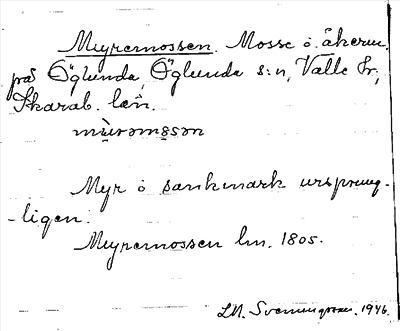 Myremossen. Mosse o. åkerm.
på Öglunda, Öglunda s:n, Valle hr,
Skarab. län.
mỳrəmo̬sən
Myr o sankmark ursprung-
-ligen.
Myremossen lm. 1805.
1946.